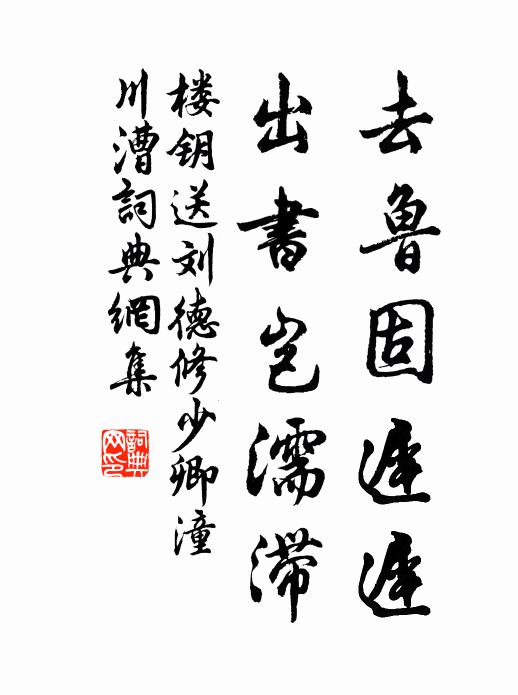 去鲁固遅遅
出書岂濡滞
楼钥送刘德修少卿潼
川漕詞典網集
詞典
网印